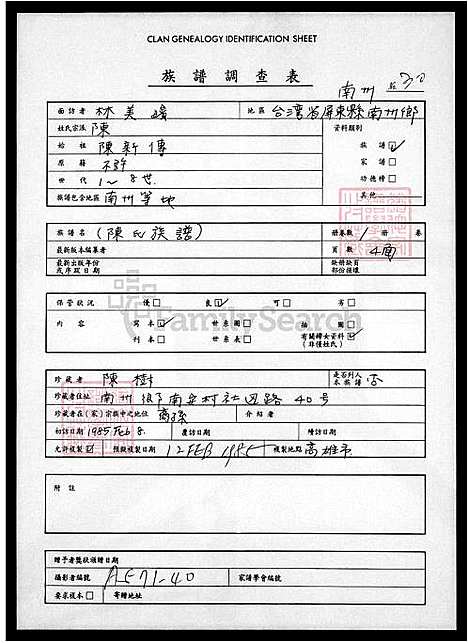 CLAN GENEALOGY IDENTIFICATION SHEET
族譜調查表
南州
面訪者 林美 地區 台湾省屏東縣南州鄉
姓氏宗派 陳 資料類別
始祖 陳新傳 族譜 ✓
原籍 不詳 家譜 □
世代 1~8世 功德榜 □
族譜包含地區 南州等地 其他
族譜名 (陳氏族譜) 冊卷數 1 冊 卷
最新版本編纂者 頁數 4面
最新出版年份或序跋日期 缺冊缺頁部份撮環
保管狀況 優□ 良☑ 可□ 劣□
內容 寫本☑ 世系圖□ 插圖□
印本□ 世系表□ 有關婦女資料☑ (非僅姓氏)
FamilySearch
珍藏者 陳樹 是否列入本族譜 否
珍藏者住址 南州鄉南安村社边路40号
珍藏者在(家)宗族中之地位 裔孫 介紹者
初訪日期 1985 Feb 8. 覆訪日期 續訪日期
允許複製☑ 預擬複製日期 12 FEB 1985 複製地點 高雄市
附註
贈予者獎狀頒贈日期
攝影者編號 AF71-40 家譜學會編號
要求複本□ 寄贈地址